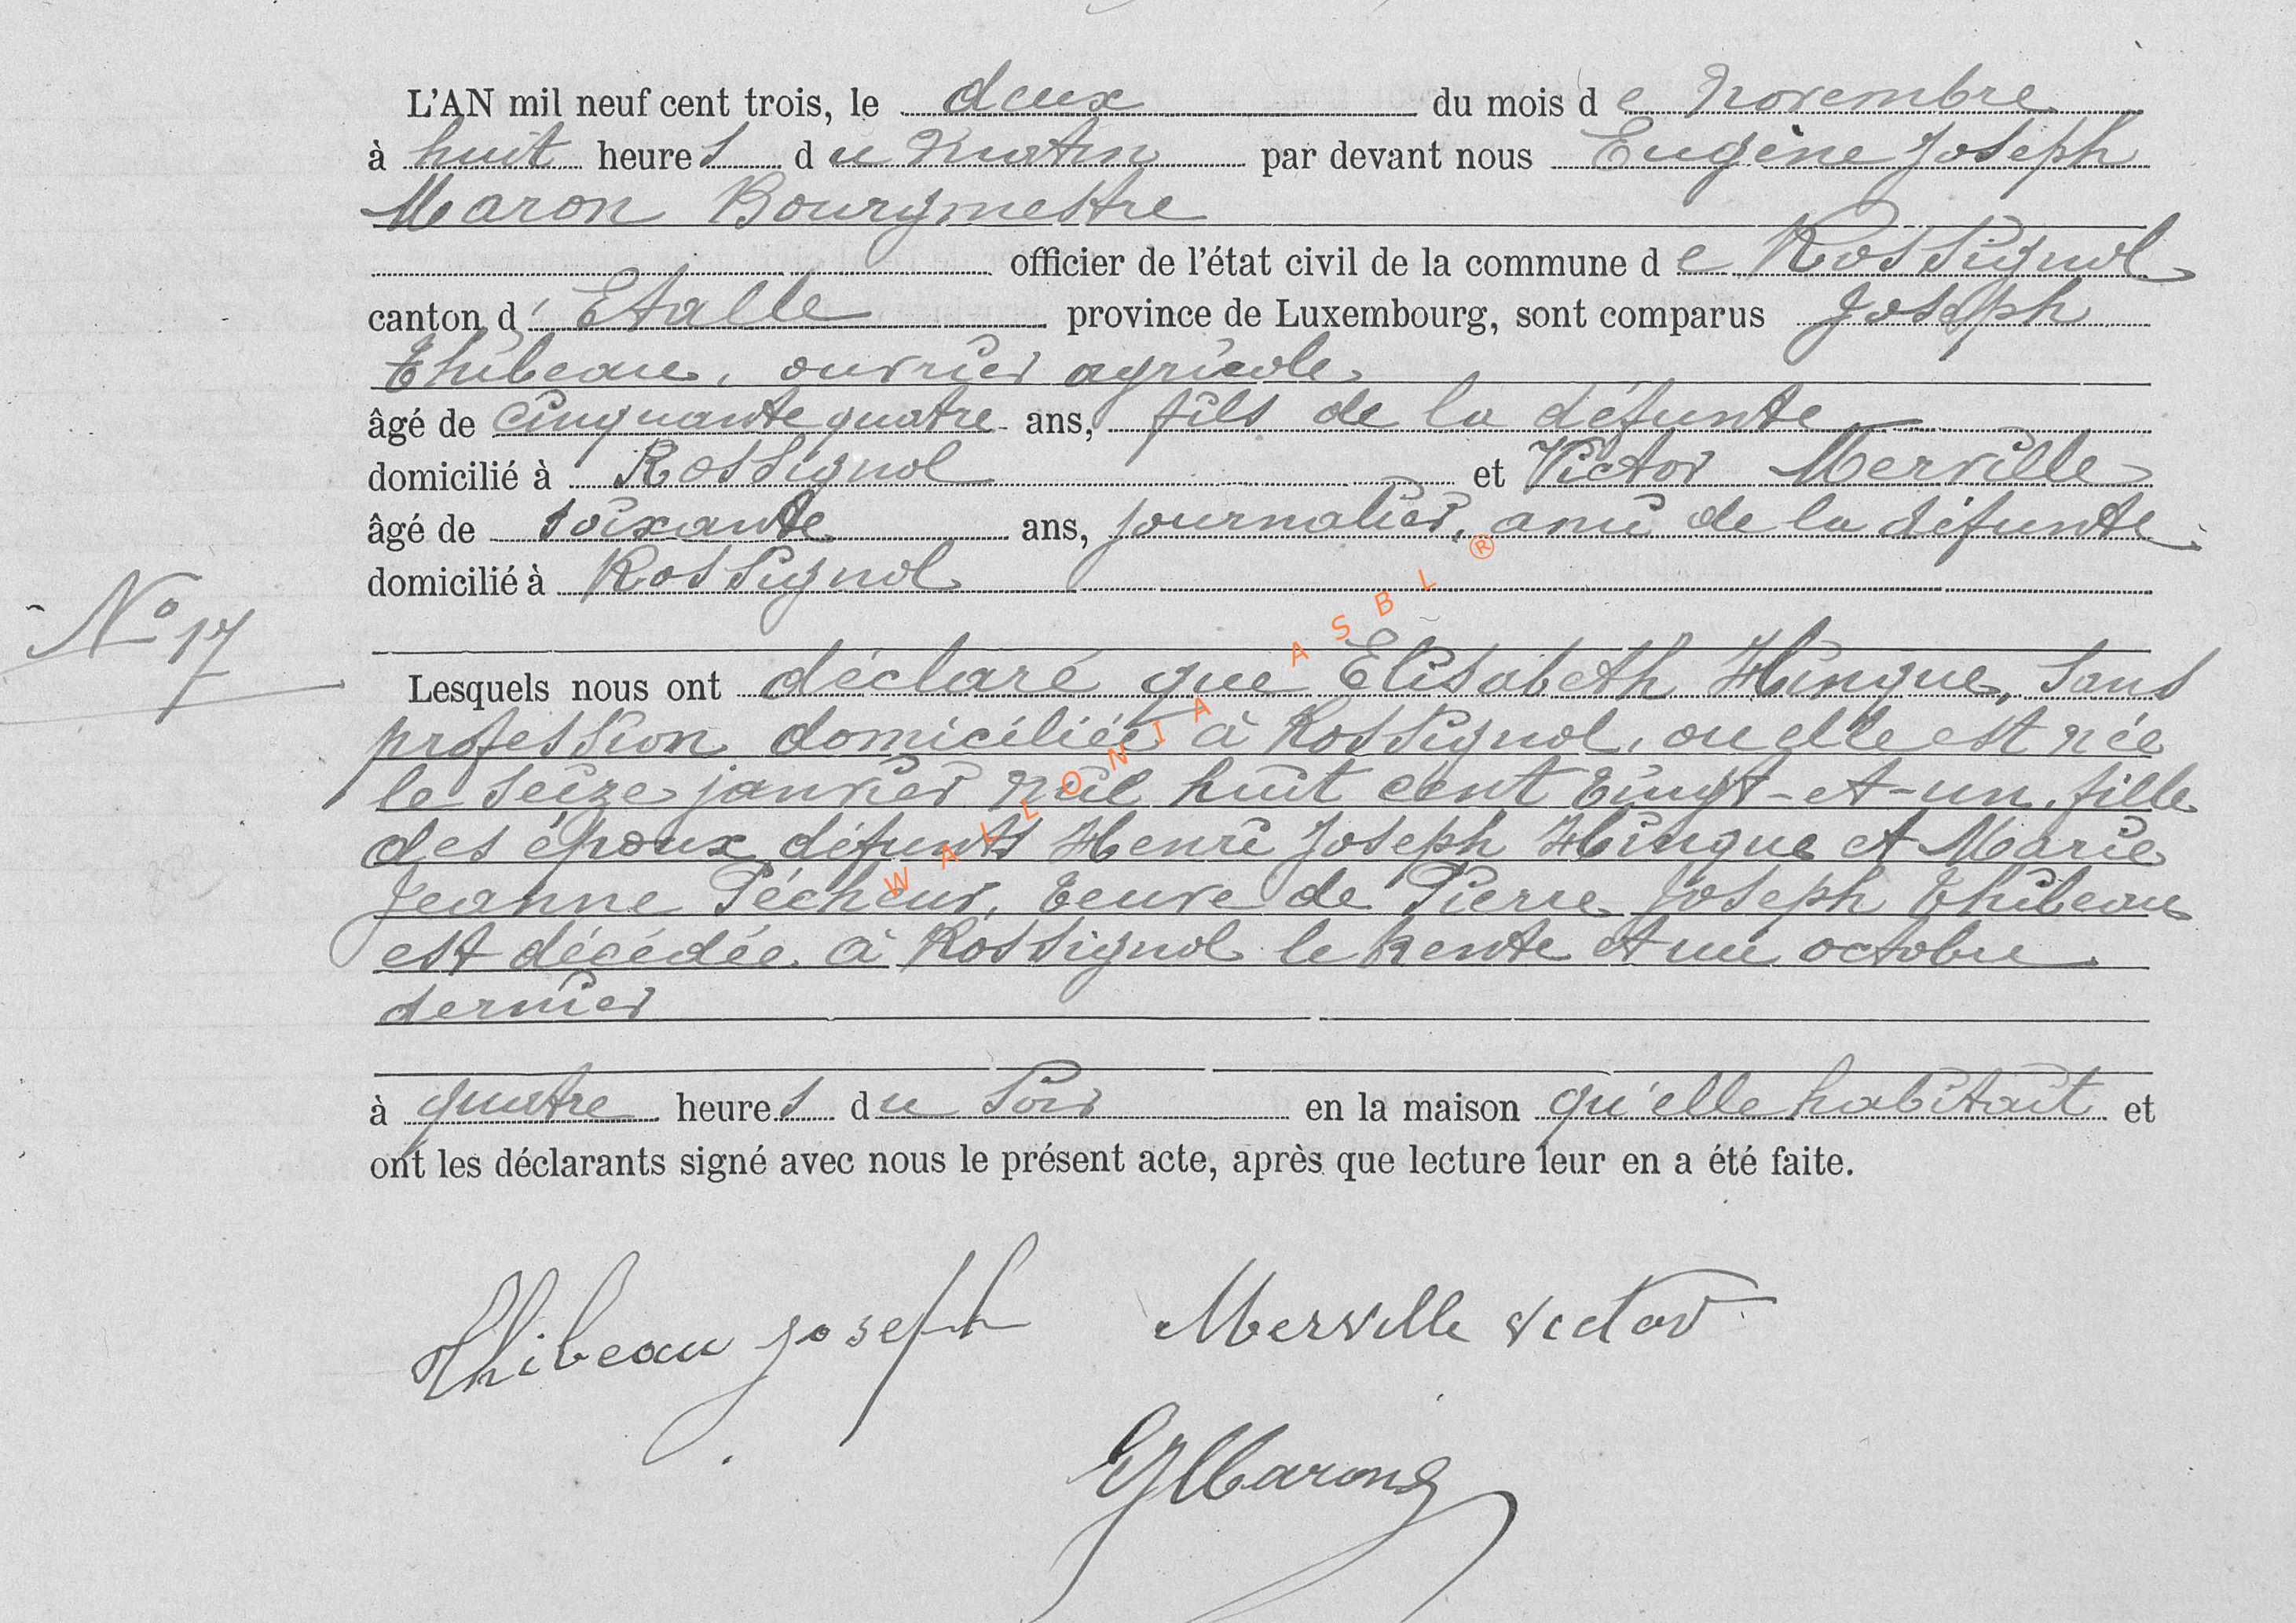 L'AN mil neuf cent trois, le deux du mois de Novembre
à huit heures du Matin par devant nous Eugène Joseph
Maron Bourgmestre
officier de l'état civil de la commune de Rossignol
canton d'Etalle province de Luxembourg, sont comparus Joseph
Thibeau, ouvrier agricole
âgé de cinquante quatre ans, fils de la défunte
domicilié à Rossignol et Victor Merville
âgé de soixante ans, journalier, ami de la défunte
domicilié à Rossignol
N° 17
Lesquels nous ont déclaré que Elisabeth Hingue, sans
profession domiciliée à Rossignol, ou elle est née
le seize janvier mil huit cent vingt-et-un, fille
des époux défunts Henri Joseph Hingue et Marie
Jeanne Pécheur, veuve de Pierre Joseph Thibeau
est décédée à Rossignol le trente et un octobre
dernier
à quatre heures du soir en la maison qu'elle habitait et
ont les déclarants signé avec nous le présent acte, après que lecture leur en a été faite.
Thibeau joseph Merville victor
EJMaron
WALLONIA ASBL ®